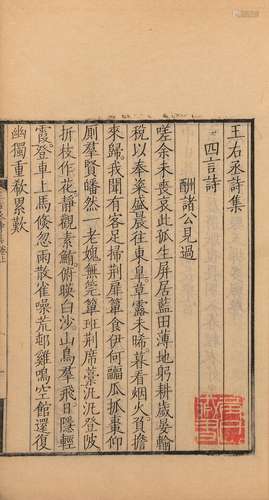 王右丞詩集
四言詩
酬諸公見過
嗟余未喪哀此孤生屏居藍田薄地躬耕歲晏輸
稅以奉粢盛晨往東皐草露未晞暮看烟火負擔
來歸我聞有客足掃荊扉簞食伊何副瓜抓棗仰
廁羣賢皤然一老媿無莞簟班荊席藁汎汎登陂
折枝作花靜觀素鮪俯映白沙山鳥羣飛日隱輕
霞登車上馬倐忽雨散雀噪荒邨雞鳴空館還復
幽獨重欷累歎